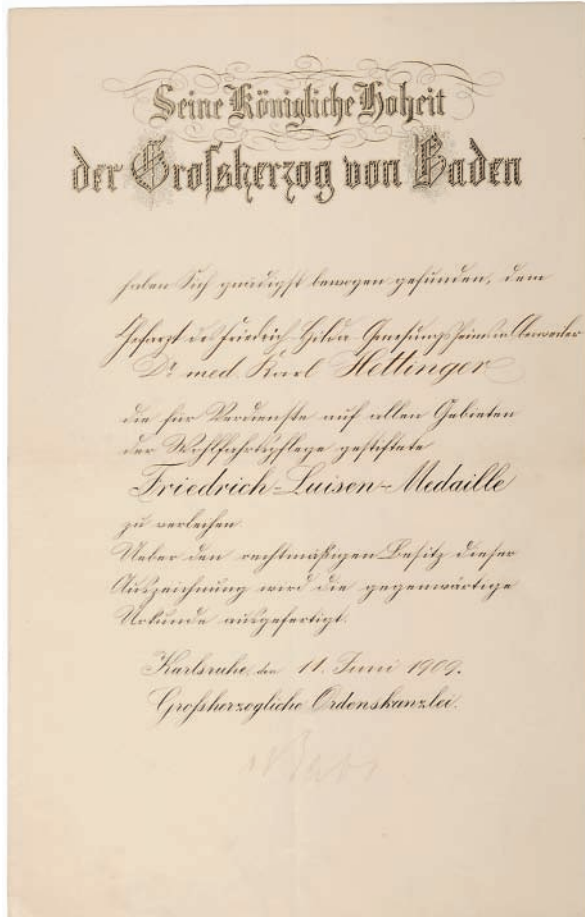 Seine Königliche Hoheit
der Grossherzog von Baden
haben Sich gnädigst bewogen gefunden, dem
Chefarzt des Friedrich-Hilda-Genesungsheims in Oberweiler
Dr. med. Karl Hettinger
die für Verdienste auf allen Gebieten
der Wohlfahrtspflege gestiftete
Friedrich-Luisen-Medaille
zu verleihen.
Ueber den rechtmäßigen Besitz dieser
Auszeichnung wird die gegenwärtige
Urkunde ausgefertigt.
Karlsruhe, den 11. Juni 1909.
Großherzogliche Ordenskanzlei.